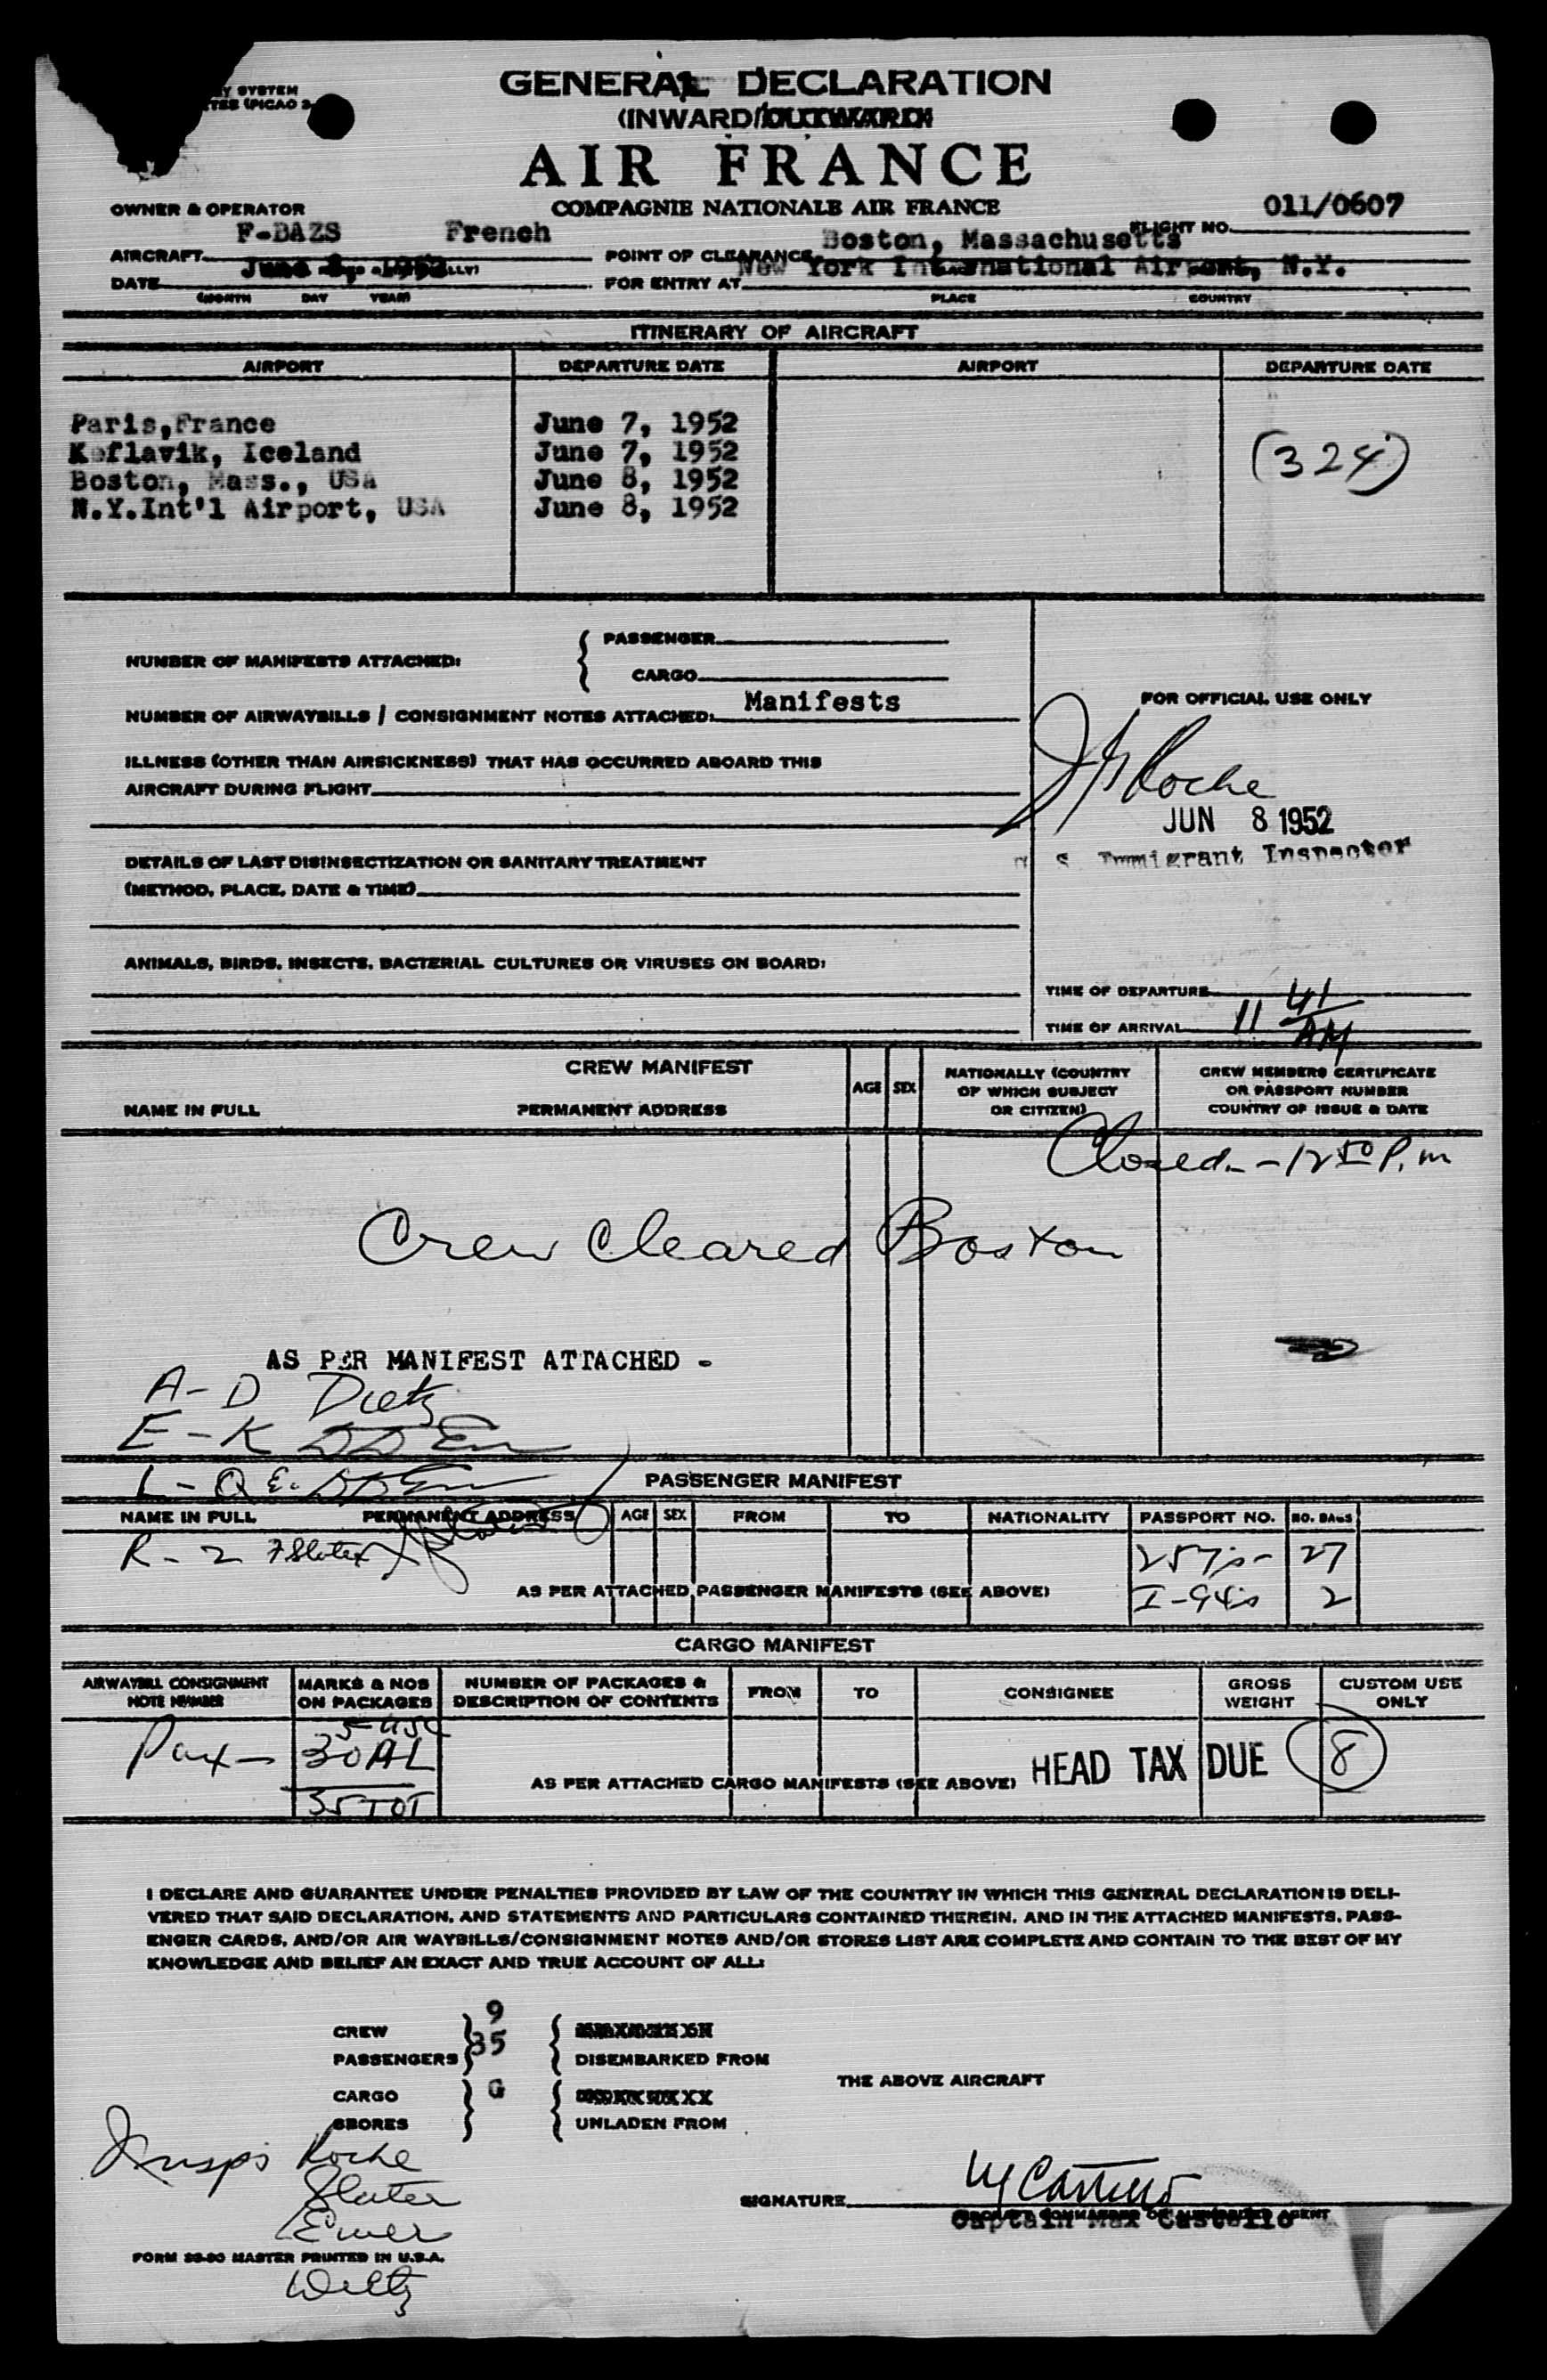 Y SYSTEM
GENERAL DECLARATION
(INWARD/OUTWARD)
AIR FRANCE
COMPAGNIE NATIONALE AIR FRANCE
OWNER & OPERATOR
FLIGHT NO. 011/0607
AIRCRAFT F-BAZS French
POINT OF CLEARANCE Boston, Massachusetts
DATE June 8, 1952
FOR ENTRY AT New York International Airport, N.Y.
(MONTH DAY YEAR)
PLACE COUNTRY
ITINERARY OF AIRCRAFT
AIRPORT DEPARTURE DATE AIRPORT DEPARTURE DATE
Paris,France June 7, 1952
Keflavik, Iceland June 7, 1952
(324)
Boston, Mass., USA June 8, 1952
N.Y.Int'l Airport, USA June 8, 1952
PASSENGER
NUMBER OF MANIFESTS ATTACHED:
CARGO
NUMBER OF AIRWAYBILLS / CONSIGNMENT NOTES ATTACHED: Manifests
FOR OFFICIAL USE ONLY
ILLNESS (OTHER THAN AIRSICKNESS) THAT HAS OCCURRED ABOARD THIS
AIRCRAFT DURING FLIGHT
Roche
JUN 8 1952
S Immigrant Inspector
DETAILS OF LAST DISINSECTIZATION OR SANITARY TREATMENT
(METHOD, PLACE, DATE & TIME)
ANIMALS, BIRDS, INSECTS, BACTERIAL CULTURES OR VIRUSES ON BOARD:
TIME OF DEPARTURE
TIME OF ARRIVAL 11 41 AM
CREW MANIFEST
NAME IN FULL PERMANENT ADDRESS
AGE SEX
NATIONALLY (COUNTRY
OF WHICH SUBJECT
OR CITIZEN)
CREW MEMBERS CERTIFICATE
OR PASSPORT NUMBER
COUNTRY OF ISSUE & DATE
Closed - 12 50 P.m
Crew Cleared Boston
AS PER MANIFEST ATTACHED -
A-D Dietz
E-K
L-Q
PASSENGER MANIFEST
NAME IN FULL PERMANENT ADDRESS AGE SEX FROM TO NATIONALITY PASSPORT NO. NO. BAGS
R - Z Slater
257s - 27
AS PER ATTACHED PASSENGER MANIFESTS (SEE ABOVE)
I-94s 2
CARGO MANIFEST
AIRWAYBILL CONSIGNMENT
NOTE NUMBER
MARKS & NOS
ON PACKAGES
NUMBER OF PACKAGES &
DESCRIPTION OF CONTENTS
FROM TO CONSIGNEE
GROSS
WEIGHT
CUSTOM USE
ONLY
5 USC
Pax - 30 AL
35 TOT
AS PER ATTACHED CARGO MANIFESTS (SEE ABOVE)
HEAD TAX DUE 8
I DECLARE AND GUARANTEE UNDER PENALTIES PROVIDED BY LAW OF THE COUNTRY IN WHICH THIS GENERAL DECLARATION IS DELI-
VERED THAT SAID DECLARATION, AND STATEMENTS AND PARTICULARS CONTAINED THEREIN, AND IN THE ATTACHED MANIFESTS, PASS-
ENGER CARDS, AND/OR AIR WAYBILLS/CONSIGNMENT NOTES AND/OR STORES LIST ARE COMPLETE AND CONTAIN TO THE BEST OF MY
KNOWLEDGE AND BELIEF AN EXACT AND TRUE ACCOUNT OF ALL:
CREW 9
PASSENGERS 35
DISEMBARKED FROM
THE ABOVE AIRCRAFT
CARGO G
STORES
UNLADEN FROM
Insps Roche
Slater
SIGNATURE M Castello
Captain Max Castello
FORM 20-90 MASTER PRINTED IN U.S.A.